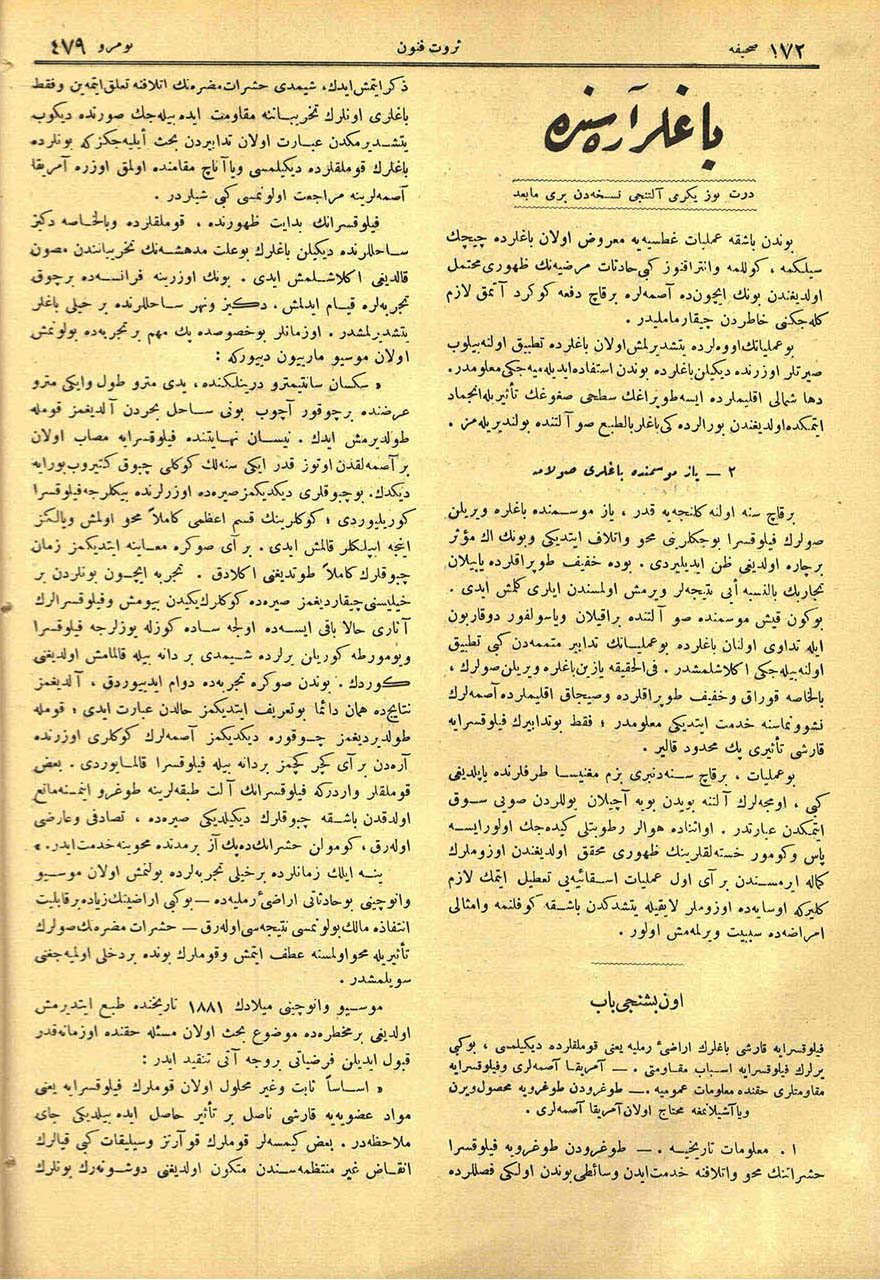 صحيفه ١٧٢
ثروت فنون
نومرو ٤٧٩
باغلر آره‌سنده
درت يوز يكرمى آلتنجى نسخه‌دن برى مابعد
بوندن باشقه عمليات غطسيه‌يه معروض اولان باغلرده چيچك
سيلكمه ، كوللمه وانتراقنوز كبى حادثات مرضيه‌نك ظهورى محتمل
اولديغندن بونك ايچون‌ده آصمه‌لره برقاچ دفعه كوكرد آتمق لازم
كله‌جكنى خاطردن چيقارمامليدر .
بوعملياتك اووه‌لرده يتشديرلمش اولان باغلرده تطبيق اولنه‌بيلوب
صيرتلر اوزرنده ديكيلن باغلرده بوندن استفاده ايديله‌ميه‌جكى معلومدر.
دها شمالى اقليملرده ايسه طوپراغك سطحى صغوغك تأثيريله انجماد
ايتمكده اولديغندن بورالرده كى باغلر بالطبع صو آلتنده بولنديريله‌مز .
٢ — ياز موسمنده باغلرى صولامه
برقاچ سنه اولنه كلنجه‌يه قدر ، ياز موسمنده باغلره ويريلن
صولرك فيلوقسرا بوجكلرينى محو واتلاف ايتديكى وبونك اك مؤثر
برچاره اولديغى ظن ايديليردى . بوده خفيف طوپراقلرده ياپيلان
تجاربك بالنسبه أيى نتيجه‌لر ويرمش اولمسندن ايلرى كلمش ايدى .
بوكون قيش موسمنده صو آلتنده براقيلان وياسولفور دوقاربون
ايله تداوى اولنان باغلرده بوعملياتك تدابير متممه‌دن كبى تطبيق
اولنه‌بيله‌جكى اكلاشلمشدر . فى‌الحقيقه يازين باغلره ويريلن صولرك ،
بالخاصه قوراق وخفيف طوپراقلرده وصيجاق اقليملرده آصمه‌لرك
نشوونماسنه خدمت ايتديكى معلومدر ؛ فقط بوتدابيرك فيلوقسرايه
قارشى تأثيرى پك محدود قالير .
بوعمليات ، برقاچ سنه‌دنبرى بزم مغنيسا طرفلرنده ياپلديغى
كبى ، اومجه‌لرك آلتنه بويدن بويه آچيلان يوللردن صويى سوق
ايتمكدن عبارتدر . اواثناده هوالر رطوبتلى كيده‌جك اولورايسه
پاس وكومور خسته‌لقلرينك ظهورى محقق اولديغندن اوزوملرك
كماله ايرمسندن بر آى اول عمليات اسقائيه‌يى تعطيل ايتمك لازم
كليركه اوسايه‌ده اوزوملر لايقيله يتشدكدن باشقه كوفلنمه وامثالى
امراضه‌ده سببيت ويرلمه‌مش اولور .
اون بشنجى باب
فيلوقسرايه قارشى باغلرك اراضئ رمليه يعنى قوملقلرده ديكيلمسى ، بوكبى
يرلرك فيلوقسرايه اسباب مقاومتى . — آمريقا آصمه‌لرى وفيلوقسرايه
مقاومتلرى حقنده معلومات عموميه — طوغرودن طوغرويه محصول‌ويرن
وياآشيلانمغه محتاج اولان آمريقا آصمه‌لرى .
١ . معلومات تاريخيه . — طوغرودن طوغرويه فيلوقسرا
حشراتنك محو واتلافنه خدمت‌ايدن وسائطى بوندن اولكى فصللرده
ذكر ايتمش ايدك، شيمدى حشرات مضره‌نك اتلافنه تعلق ايتمه‌ين وفقط
باغلرى اونلرك تخريباتنه مقاومت ايده بيله‌جك صورتده ديكوب
يتشديرمكدن عبارت اولان تدابيردن بحث أيليه‌جكز كه بونلرده
باغلرك قوملقلرده ديكيلمسى وياآناج مقامنده اولمق اوزره آمريقا
آصمه‌لرينه مراجعت اولونمسى كبى شيلردر .
فيلوقسرانك بدايت ظهورنده ، قوملقلرده وبالخاصه دكيز
ساحللرنده ديكيلن باغلرك بوعلت مدهشه‌نك تخريباتندن مصون
قالديغى اكلاشلمش ايدى . بونك اوزرينه فرانسه‌ده برچوق
تجربه‌لره قيام ايدلمش ، دكيز ونهر ساحللرنده بر خيلى باغلر
يتشديرلمشدر . اوزمانلر بوخصوصده پك مهم بر تجربه‌ده بولونمش
اولان موسيو مارييون دييوركه :
« سكسان سانتيمترو درينلكنده ، يدى مترو طول وايكى مترو
عرضنده برچوقور آچوب بونى ساحل بحردن آلديغمز قومله
طولديرمش ايدك . نيسان نهايتنده فيلوقسرايه مصاب اولان
بر آصمه‌لقدن اوتوز قدر ايكى سنه‌لك كوكلى چبوق كتيروب بورايه
ديكدك. بوچبوقلرى ديكديكمز صيره‌ده اوزرلرنده بيكلرجه فيلوقسرا
كوريليوردى ؛ كوكلرينك قسم اعظمى كاملاً محو اولمش ويالكز
اينجه ايپلكلر قالمش ايدى . بر آى صوكره معاينه ايتديكمز زمان
چبوقلرك كاملاً طوتديغنى اكلادق . تجربه ايچون بونلردن بر
خيليسنى چيقارديغمز صيره‌ده كوكلرك يكيدن بيومش وفيلوقسرالرك
آثارى حالا باقى ايسه‌ده اولجه ساده كوزله يوزلرجه فيلوقسرا
ويومورطه كوريلن يرلرده شيمدى بر دانه بيله قالمامش اولديغنى
كوردك . بوندن صوكره تجربه‌ده دوام ايدييوردق ، آلديغمز
نتايج‌ده همان دائما بوتعريف ايتديكمز حالدن عبارت ايدى ؛ قومله
طولديرديغمز چوقوره ديكديكمز آصمه‌لرك كوكلرى اوزرنده
آره‌دن بر آى كچر كچمز بردانه بيله فيلوقسرا قالمايوردى . بعض
قوملقلر واردركه فيلوقسرانك آلت طبقه‌لرينه طوغرو ايتمنه مانع
اولدقدن باشقه چبوقلرك ديكيلديكى صيره‌ده ، تصادفى وعارضى
اوله‌رق ، كومولن حشراتك‌ده پك آز برمدتده محوينه خدمت ايدر. »
ينه ايلك زمانلرده برخيلى تجربه‌لرده بولنمش اولان موسيو
وانوچينى بوحادثاتى اراضئ رمليه‌ده — بوكبى اراضينك زياده برقابليت
انتفاذه مالك بولونمسى نتيجه‌سى اوله‌رق — حشرات مضره‌نك صولرك
تأثيريله محو اولمسنه عطف ايتمش وقوملرك بونده بردخلى اوليه‌جغنى
سويلمشدر .
موسيو وانوچينى ميلادك ١٨٨١ تاريخنده طبع ايتديرمش
اولديغى برمخطره‌ده موضوع بحث اولان مسئله حقنده اوزمانه‌قدر
قبول ايديلن فرضياتى بروجه آتى تنقيد ايدر :
« اساساً ثابت وغير محلول اولان قوملرك فيلوقسرايه يعنى
مواد عضويه‌يه قارشى ناصل بر تأثير حاصل ايده بيلديكى جاى
ملاحظه‌در . بعض كيمسه‌لر قوملرك قوآرتز وسيليقات كبى قيالرك
انقاض غير منتظمه‌سندن متكون اولديغنى دوشونه‌رك بونلرك